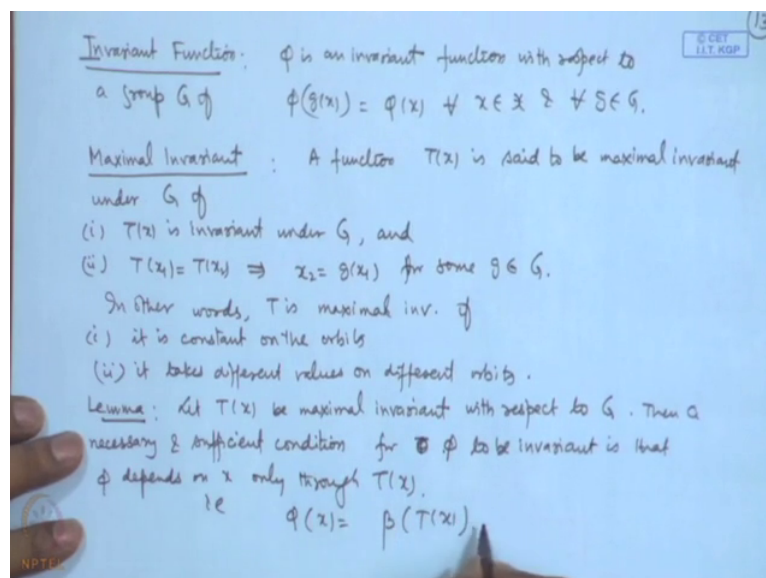 13
© CET
I.I.T. KGP
Invariant Function: φ is an invariant function with respect to
a group G if φ(g(x)) = φ(x) ∀ x ∈ 𝔛 & ∀ g ∈ G.
Maximal Invariant : A function T(x) is said to be maximal invariant
under G if
(i) T(x) is invariant under G, and
(ii) T(x₁) = T(x₂) ⇒ x₂ = g(x₁) for some g ∈ G.
In other words, T is maximal inv. if
(i) it is constant on the orbits
(ii) it takes different values on different orbits.
Lemma: Let T(x) be maximal invariant with respect to G. Then a
necessary & sufficient condition for φ to be invariant is that
φ depends on x only through T(x).
ie φ(x) = β(T(x))
NPTEL